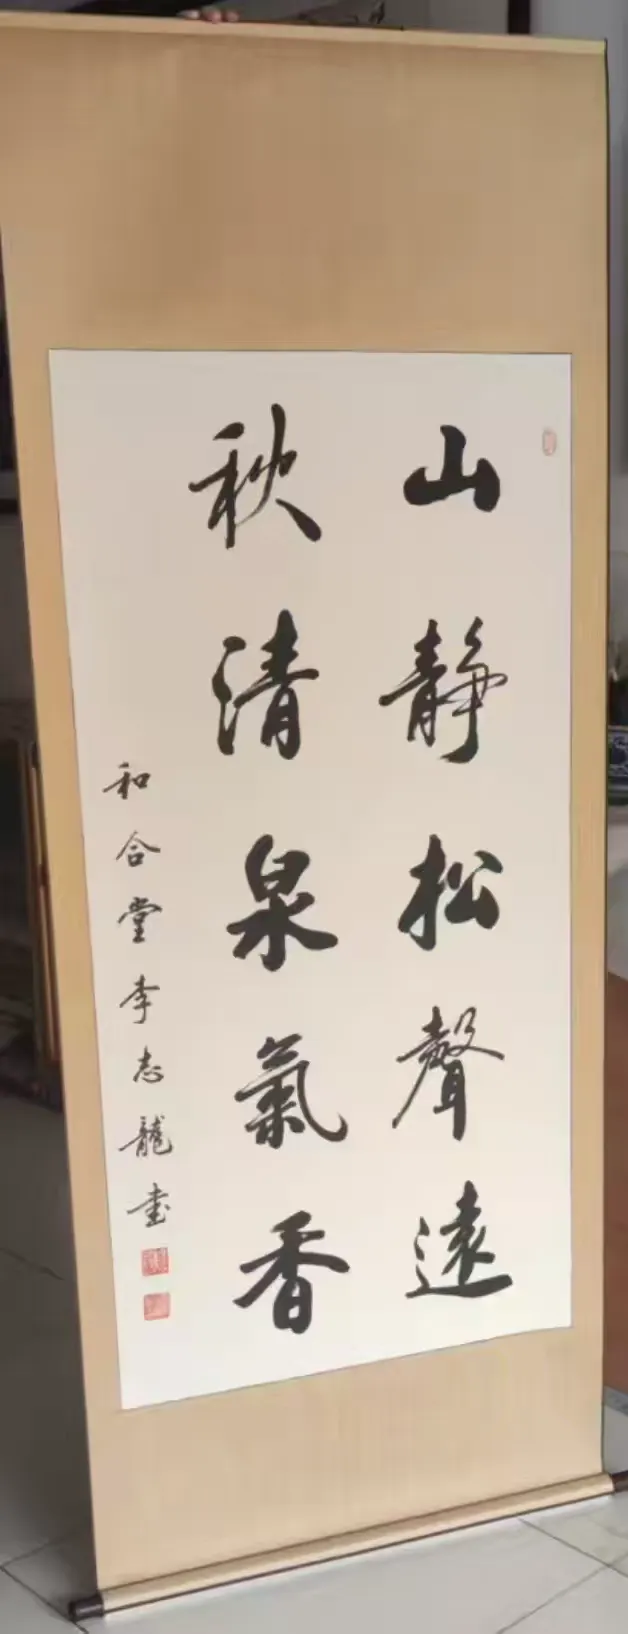 山靜松聲遠
秋清泉氣香
和合堂李志龍書